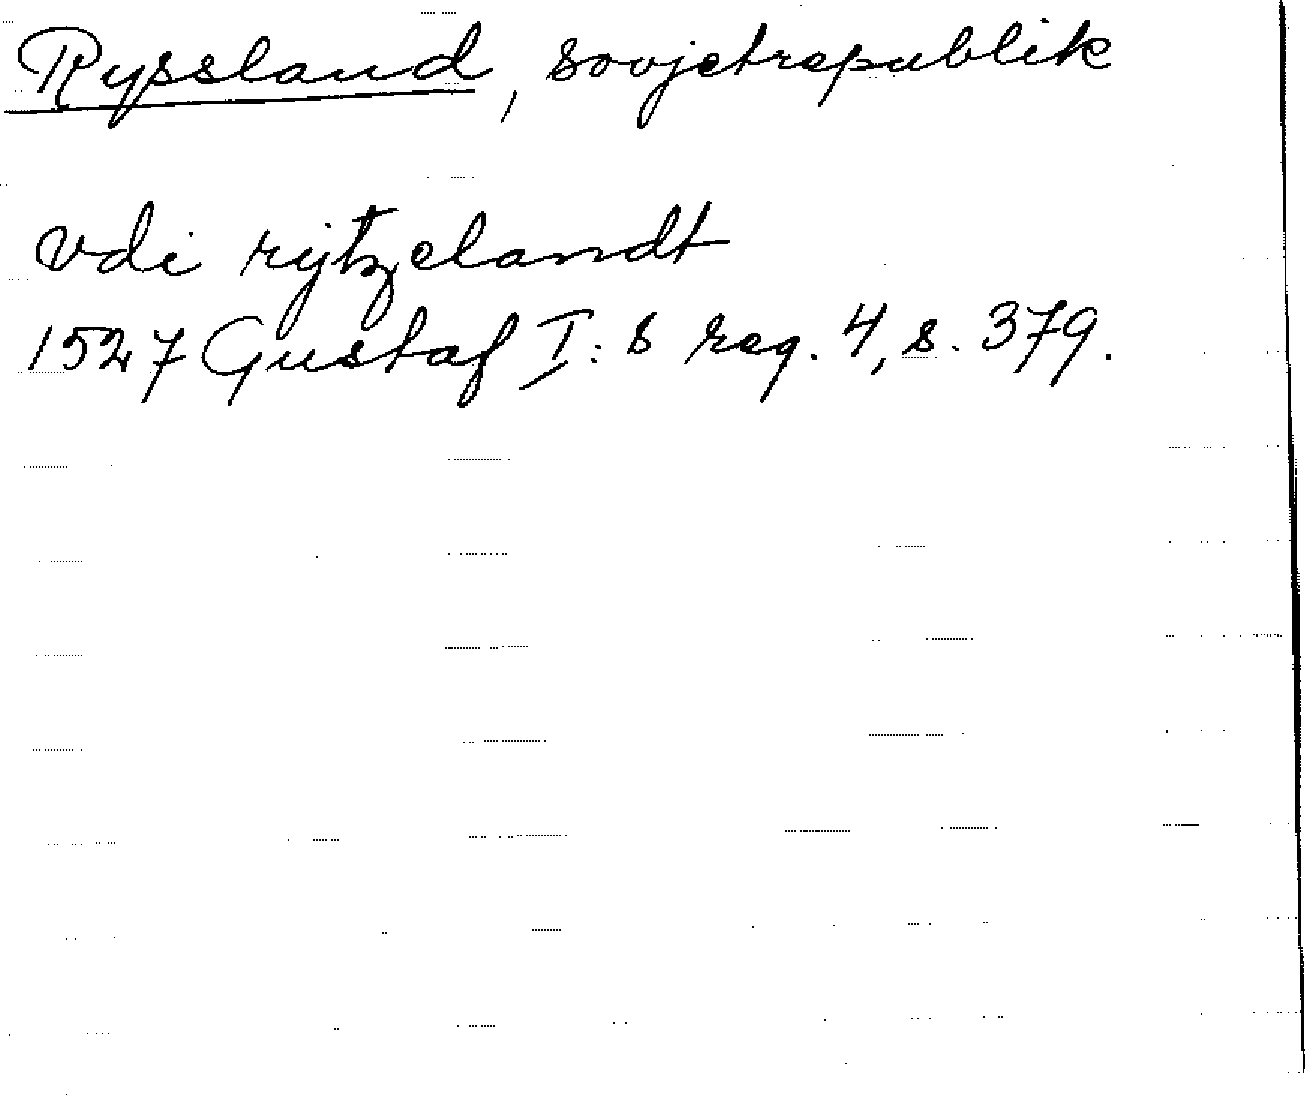 Ryssland, sovjetrepublik
vdi rijtzelandt
1527 Gustaf I:s reg. 4, s. 379.